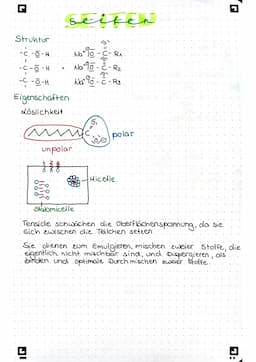 Seifen
Struktur
-C-O-H Na⁺ O-C-R₁
-C-O-H + Na⁺ O-C-R₂
-C-O-H Na⁺ O-C-R₃
Eigenschaften
Löslichkeit
polar
unpolar
Micelle
Tenside schwächen die Oberflächenspannung, da sie
sich zwischen die Teilchen setzen
Sie dienen zum Emulgieren, mischen zweier Stoffe, die
eigentlich nicht mischbar sind, und Dispergieren, als
und optimale Durchmischen zweier Stoffe.